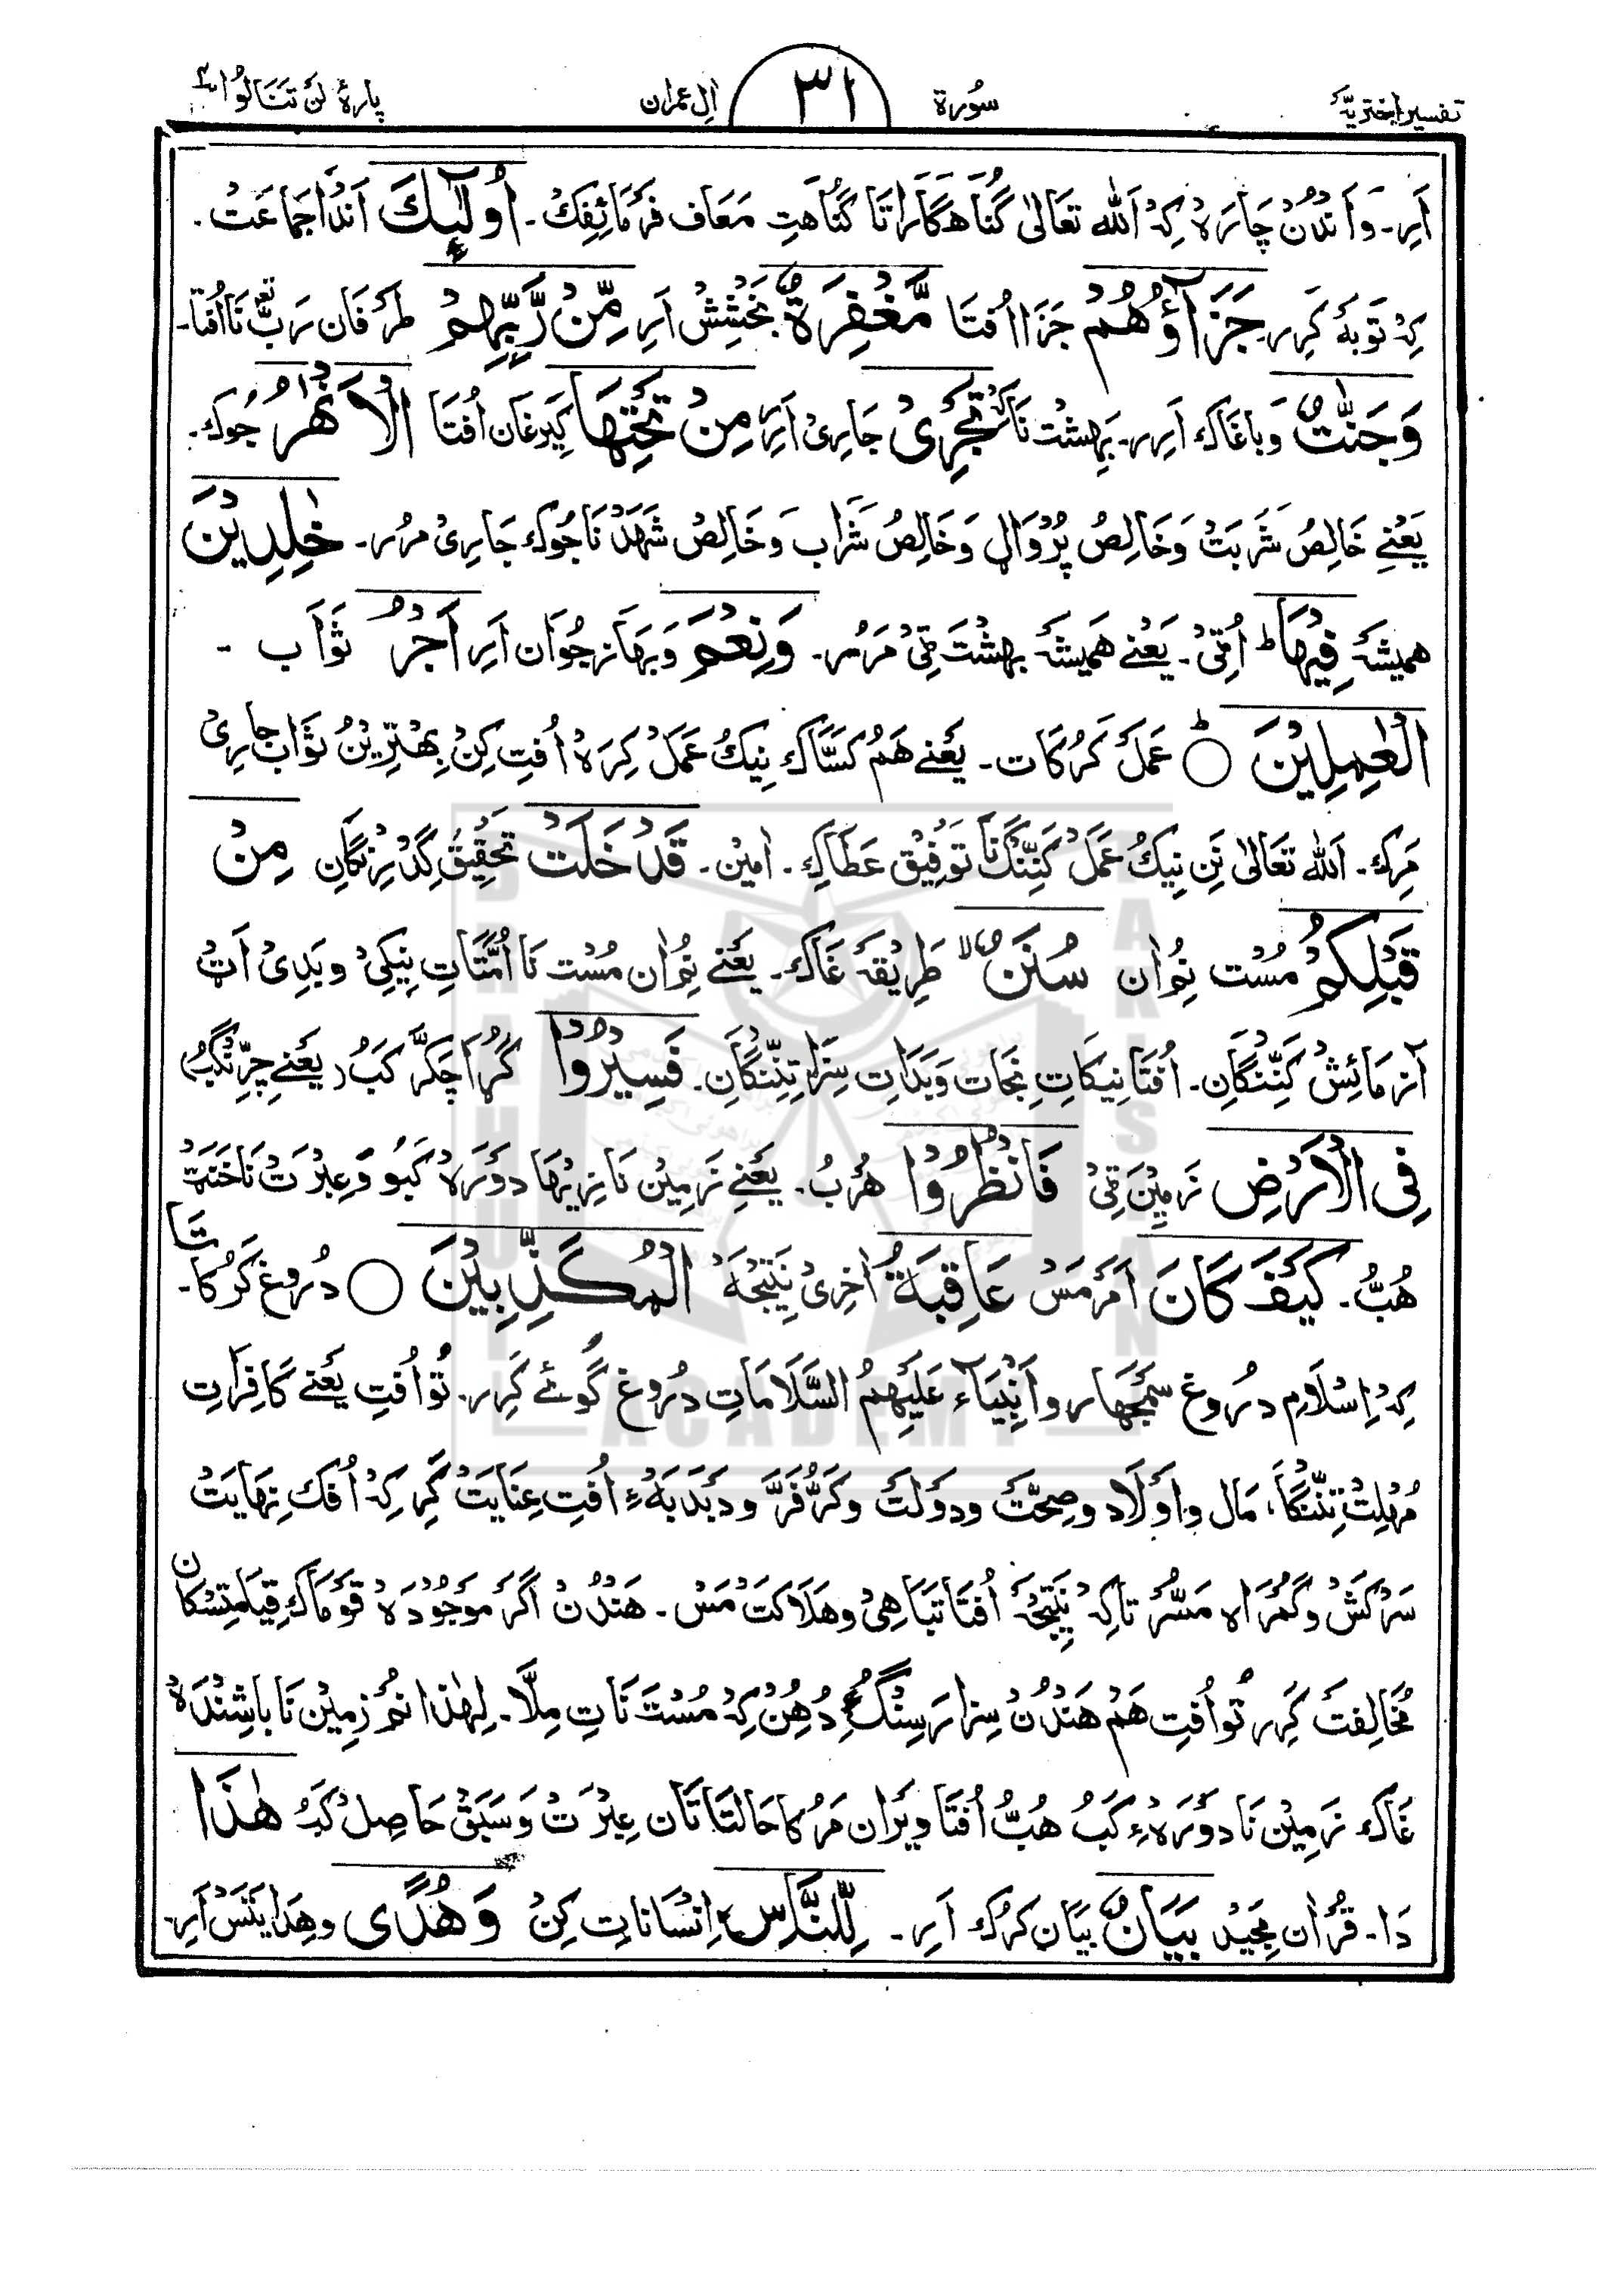 تفسیر اختریہ سُورۃ ۳۱ اٰلِ عمران پارۂ لَن تَنَالُوا ۴
اَرِ۔ وَاَندُنْ چَارَہْ کِہْ اَللّٰہ تَعَالیٰ گُنَاہ گَارَاتَا گُنَاھَتِ مَعَاف فَرْمَائِفِکْ۔ اُولٰٓئِکَ اَنْدَا جَمَاعَتْ۔
کِہْ تَوبَہْ کَرِر۔ جَزَآؤُھُمْ جَزَا اُفتَا مَّغْفِرَۃٌ بَخْشِشْ اَرِ مِّنْ رَّبِّھِمْ طَرَفَان رَبَّ نَا اُفتَا۔
وَجَنّٰتٌ وَبَاغَاک اَرِر۔ بَہِشْت نَا تَجْرِیْ جَارِیْ اَرِر مِنْ تَحْتِھَا کِیرَغَان اُفتَا الْاَنْھٰرُ جُوک۔
یَعْنِے خَالِصْ شَرْبَتْ وَخَالِصْ پِرُوَال وَخَالِصْ شَرَاب وَخَالِصْ شَہَدْ نَا جُوک جَارِیْ مَرُر۔ خٰلِدِیْنَ
ھمیشَہْ فِیْھَا ط اُفِتیْ۔ یَعْنِے ھَمیشَہْ بہشْت تِیْ مَرُر۔ وَنِعْمَ وَبَرھَانز جُوَان اَرِ اَجْرُ ثَوَاب ۔
الْعٰمِلِیْنَ ○ ط عَمَلْ کَرُکَات۔ یَعْنے ھَمْ کَسَّاک نِیکْ عَمَلْ کِرَہْ اُفتِ کِنْ بِھْتِرِیْنْ ثَوَاب جَارِیْ
مَرِک۔ اَللّٰہ تَعَالیٰ نَنِ نِیکْ عَمَلْ کَنِنگْ نَا تَوفِیْق عَطَا کِے۔ اٰمِیْن۔ قَدْ خَلَتْ تَحْقِیقْ گِدْرِنگَانِ مِنْ
قَبْلِکُمْ مُسْت نُوْان سُنَنٌ لا طَرِیقَہ غَاک۔ یَعْنے نُوْان مُسْت نَا اُمَّتَاتِ نِیکِیْ و بَدِیْ اَتْ
آزمَائِشْ کَنِّنگَانِ۔ اُفتَا نِیکَاتِ نِجَات وَبَدَاتِ سَزَا تِنِّنگَانِ۔ فَسِیْرُوْا گُرَا چَکَّرْ کَبُ (یَعْنے چَرِّنگبُ)
فِی الْاَرْضِ زَمِیْن تِیْ فَانْظُرُوْا ھُرْبُ۔ یَعْنِے زَمِیْن نَا زِیْہَا دَوْرَہْ کَبُو وَعِبْرَتْ نَا خَنَتَا
ھُبُّ۔ کَیْفَ کَانَ اَمَرْمَسْ عَاقِبَۃُ اٰخِرِیْ نَتِیْجَہْ الْمُکَذِّبِیْنَ ○ دُرُوغ کَرُکَا۔
کِہْ اِسْلَامِ دُرُوغ سَمْجَھَار و اَنْبِیَآء عَلَیْھِمُ السَّلَامَاتِ دُرُوغ گُوئے کَرِر۔ تُو اُفتِ یَعْنے کَافِرَاتِ
مُہْلِتْ تِنِّنگَا، مَال و اَولَاد و صِحَّتْ و دَولَتْ و کَرُّ فَرَّ و دَبْدَبَہْ ءِ اُفتِ عِنَایَتْ کَرِ کِہْ اُفکْ نِہَایَتْ
سَرْکَشْ و گُمْرَاہ مَسُّرْ تَاکِہْ نَتِیْجَہْ اُفتَا تَبَاھِیْ و ھَلَاکَتْ مَسْ۔ ھَنْدُنْ اَگَرْ مَوجُوْدَہْ قَومَاکْ قِیَامَتِسْکَان
مُخَالِفَتْ کَرِر تُو اُفتِ ھَمْ ھَنْدُنْ سِزَا رَسِنْگُ دُھِنْ کِہْ مُسْت نَاتِ مِلَّا۔ لِہٰذَا نُمْ زِمِیْن نَا بَاشِنْدَہْ
غَاک زَمِیْن نَا دَورَہْ ءِ کَبُ ھُبُّ اُفتَا وِیْرَان مَرُکَا حَالتَاتَان عِبْرَتْ وَسَبَقْ حَاصِلْ کَبُ ھٰذَا
دَا۔ قُرْاٰن مَجِیْد بَیَانٌ بَیَان کَرُک اَرِ ۔ لِّلنَّاسِ اِنْسَانَاتِ کِنْ وَھُدًی وھِدَایَتَسْ اَرِ۔
BRAHUI ACADEMY PAKISTAN